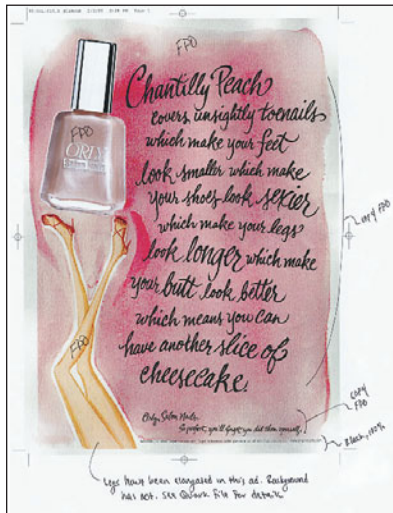 FPO
Chantilly Peach
covers unsightly toenails
which make your feet
look smaller which make
your shoes look sexier
which make your legs
look longer which make
your butt look better
which means you can
have another slice of
cheesecake.
FPO
ORLY
FPO
copy FPO
Orly Salon Nails.
So perfect, you'll forget you did them yourself.
copy
FPO
Black, 100%
Legs have been elongated in this ad. Background
has not. See Quark File For details